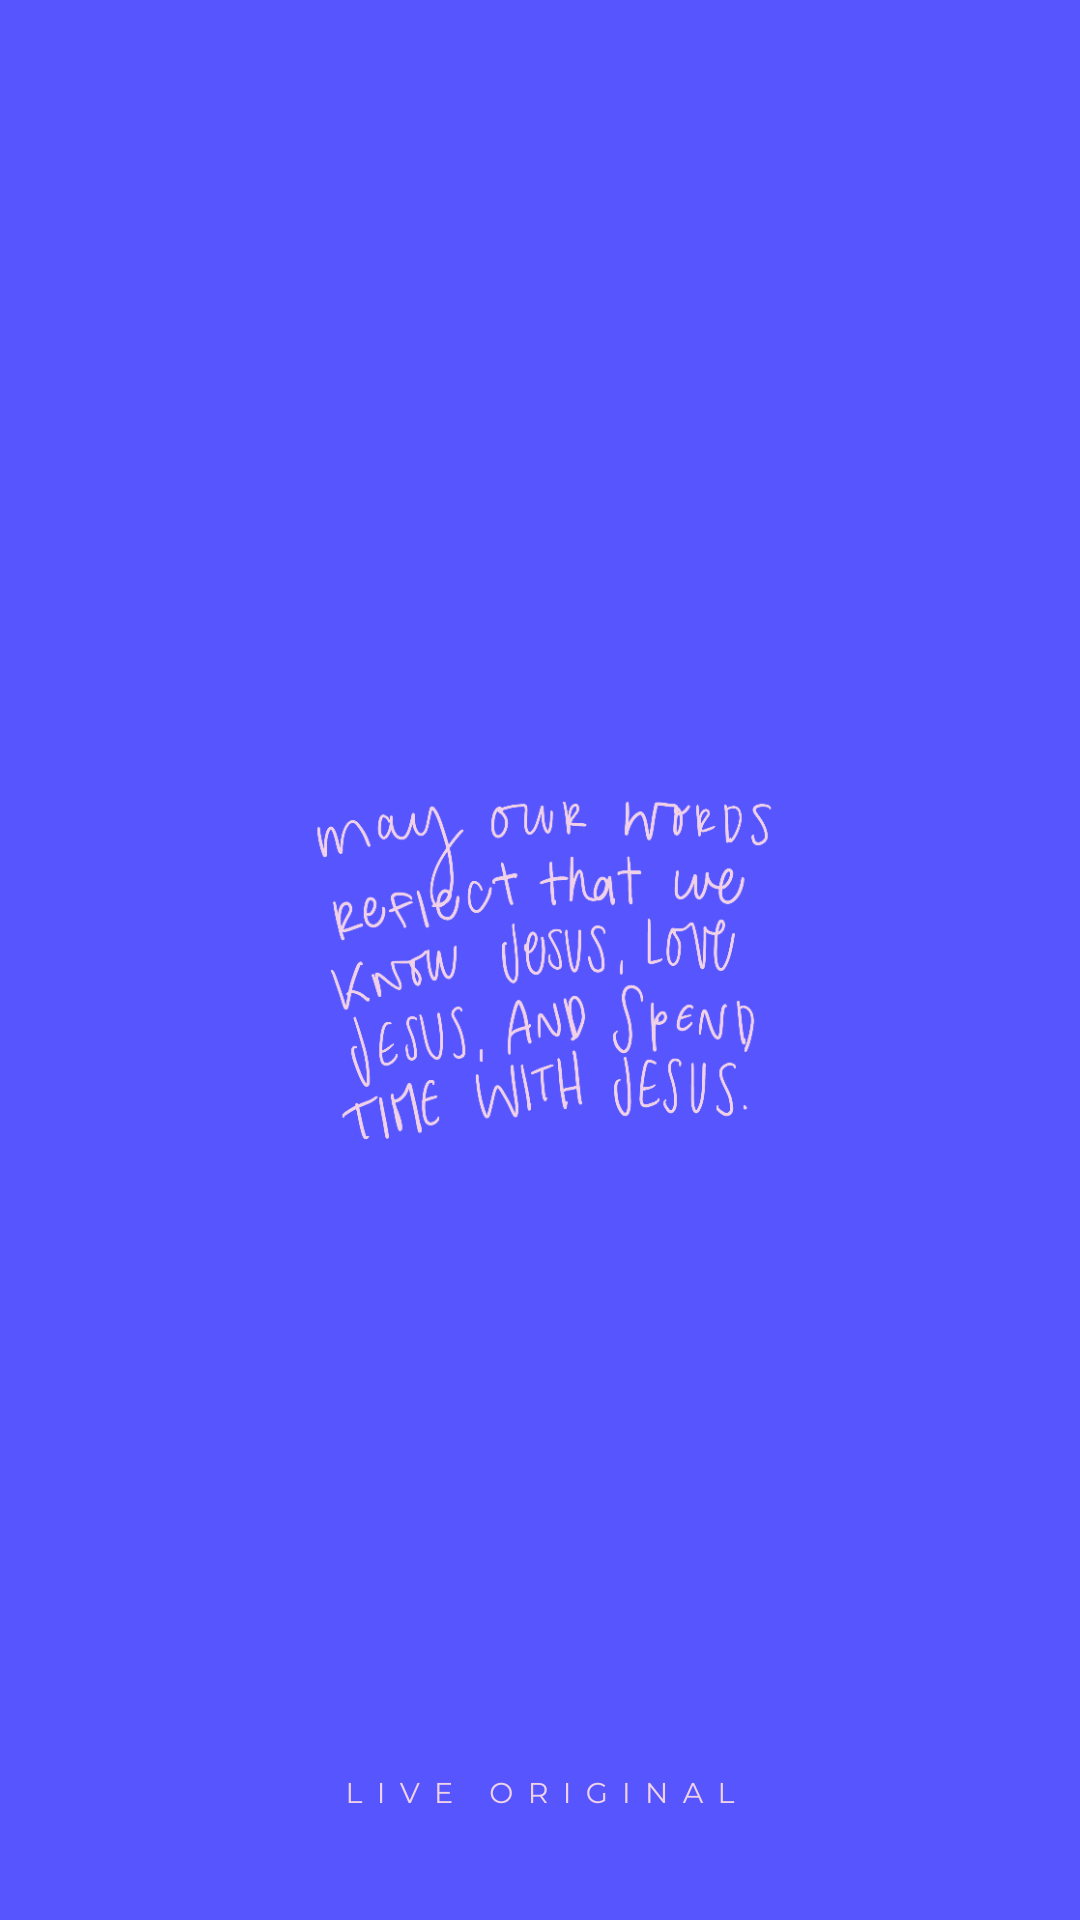 may our words
reflect that we
know Jesus, love
Jesus, and spend
time with Jesus.
LIVE ORIGINAL